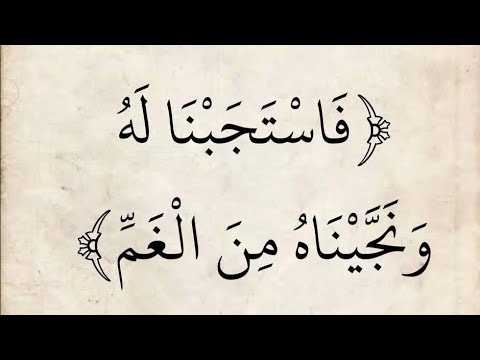 ﴿ فَاسْتَجَبْنَا لَهُ
وَنَجَّيْنَاهُ مِنَ الْغَمِّ ﴾